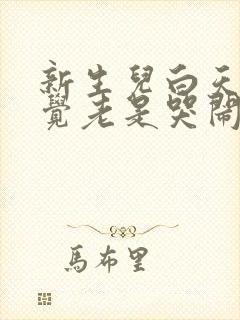 新生兒白天
覺老是哭鬧
馬布里